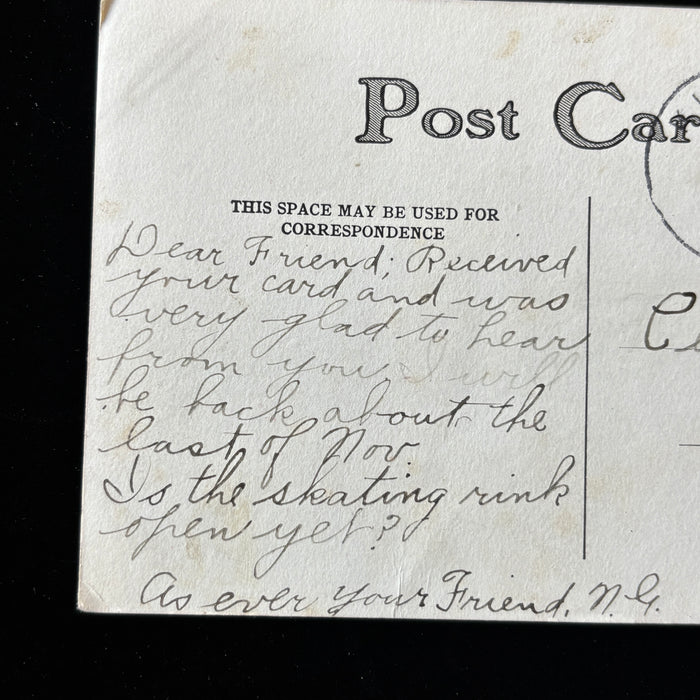 Post Car
THIS SPACE MAY BE USED FOR
CORRESPONDENCE
Dear Friend; Received
your card and was
very glad to hear
from you I will
be back about the
last of Nov
Is the skating rink
open yet?
As ever your Friend, N.G.